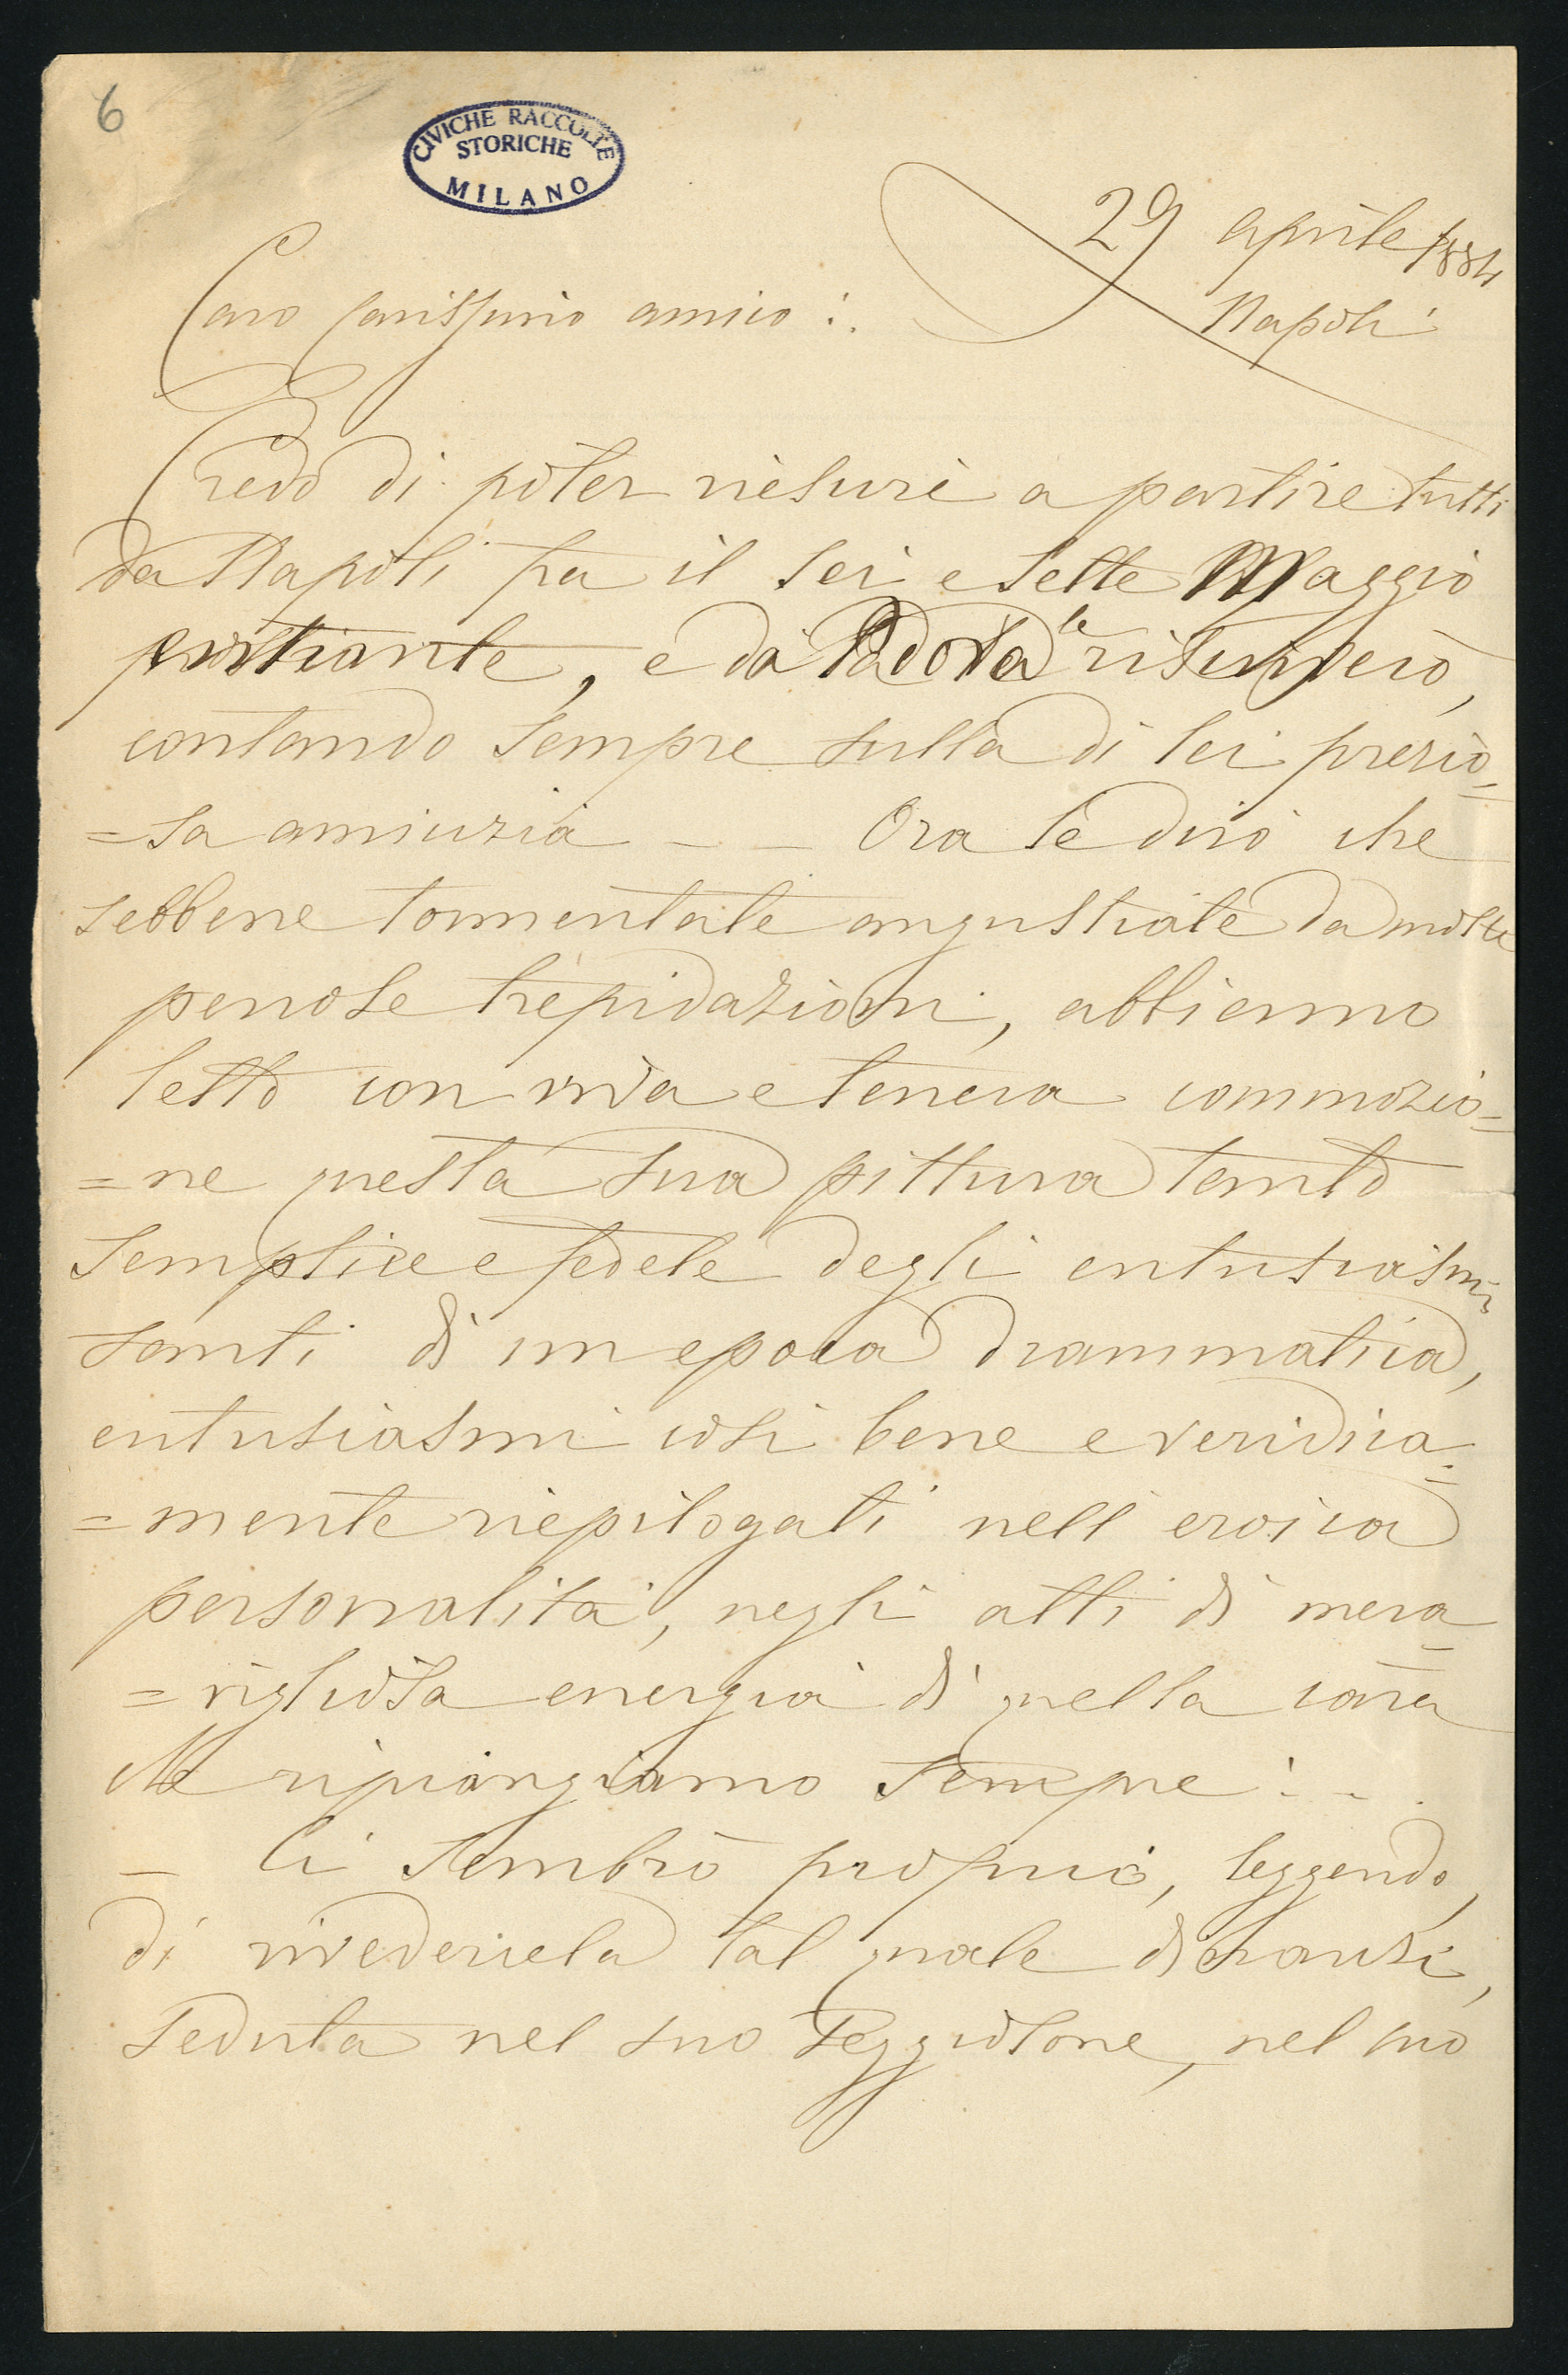 6
CIVICHE RACCOLTE
STORICHE
MILANO
29 aprile 1884
Napoli
Caro carissimo amico:.
Credo di poter riescire a partire tutti
da Napoli fra il sei e sette Maggio
prossimo, e da Padova le riscriverò,
contando sempre sulla di lei prezio=
=sa amicizia — — Ora le dirò che
sebbene tormentate angustiate da molte
penose trepidazioni, abbiamo
letto con viva e tenera commozio=
=ne questa sua pittura tanto
semplice e fedele degli entusiasmi
santi di un epoca drammatica,
entusiasmi così bene e veridica=
=mente riepilogati nell'eroica
personalità, negli atti di mera=
=vigliosa energia di quella cara
che ripiangiamo sempre:...
— Ci sembrò proprio, leggendo,
di rivedercela tal quale dinanzi,
seduta nel suo seggiolone, nel suo